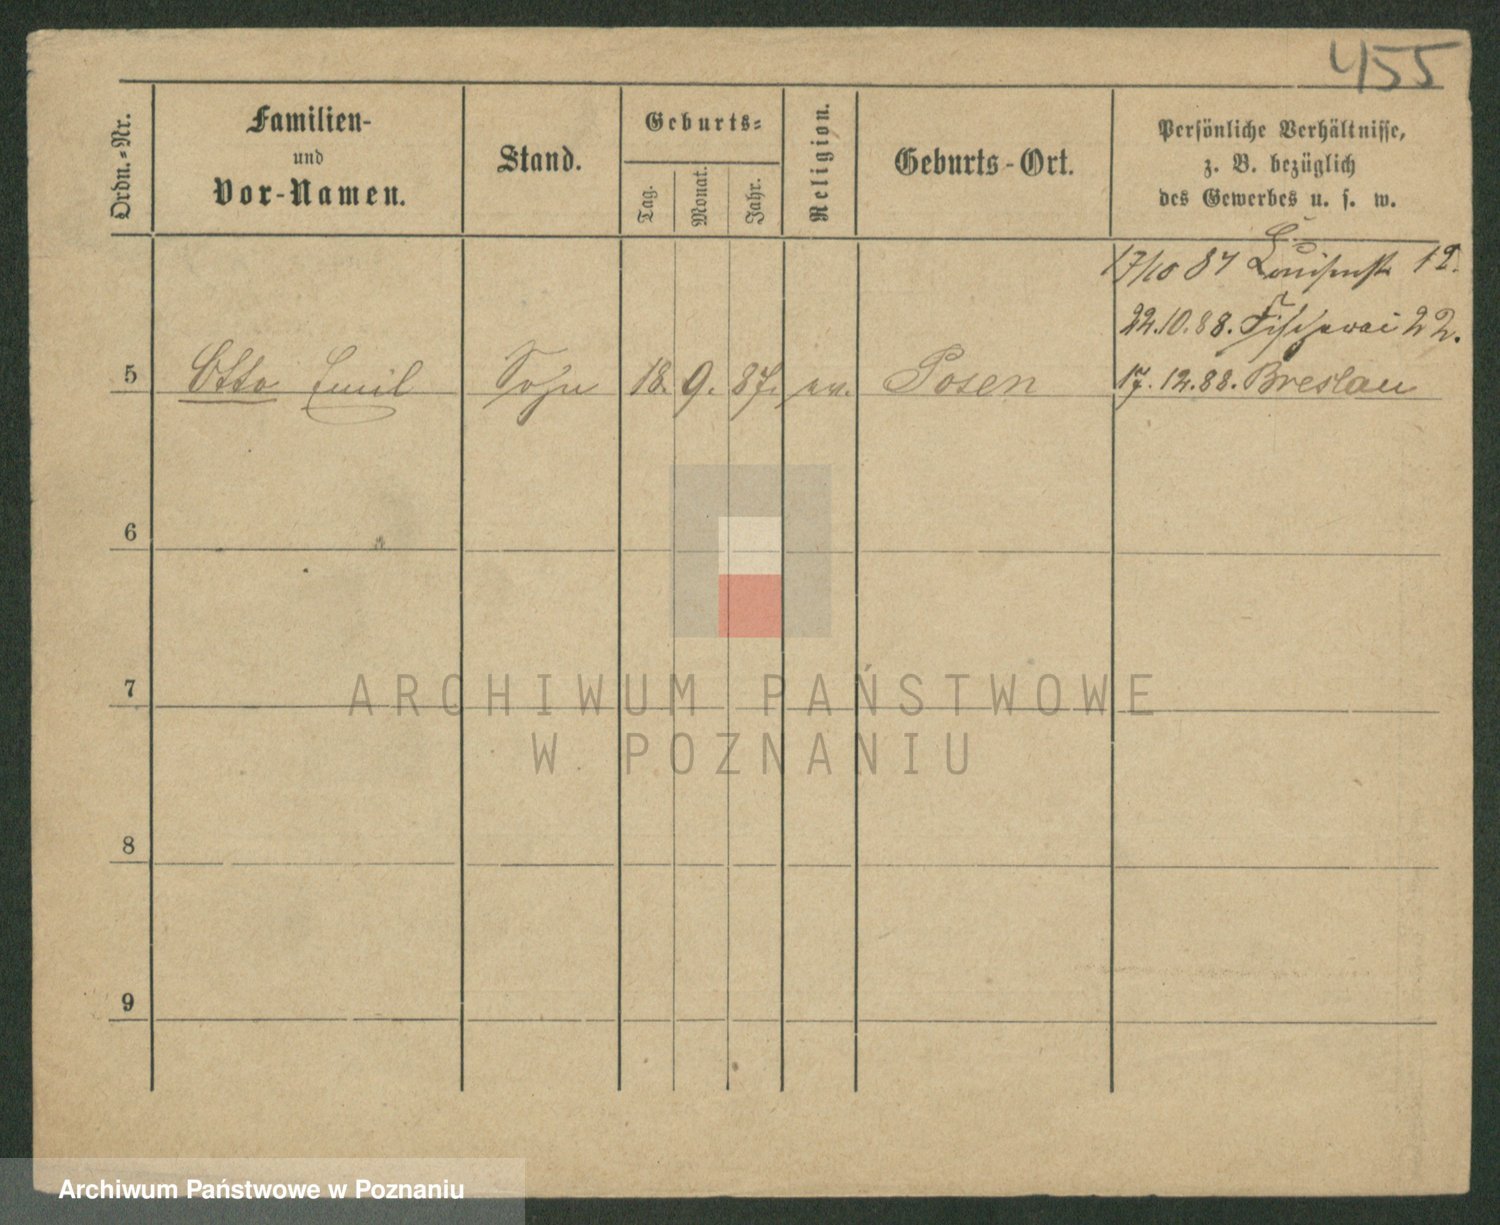 455
Ordn.-Nr.
Familien-
und
Vor-Namen.
Stand.
Geburts-
Tag.
Monat.
Jahr.
Religion.
Geburts-Ort.
Persönliche Verhältnisse,
z. B. bezüglich
des Gewerbes u. s. w.
17/10 87 Louisenstr 12.
22.10.88. Fischerei 22.
5 Otto Emil Sohn 18. 9. 87. ev. Posen 17. 12. 88. Breslau
6
7
8
9
ARCHIWUM PAŃSTWOWE
W POZNANIU
Archiwum Państwowe w Poznaniu